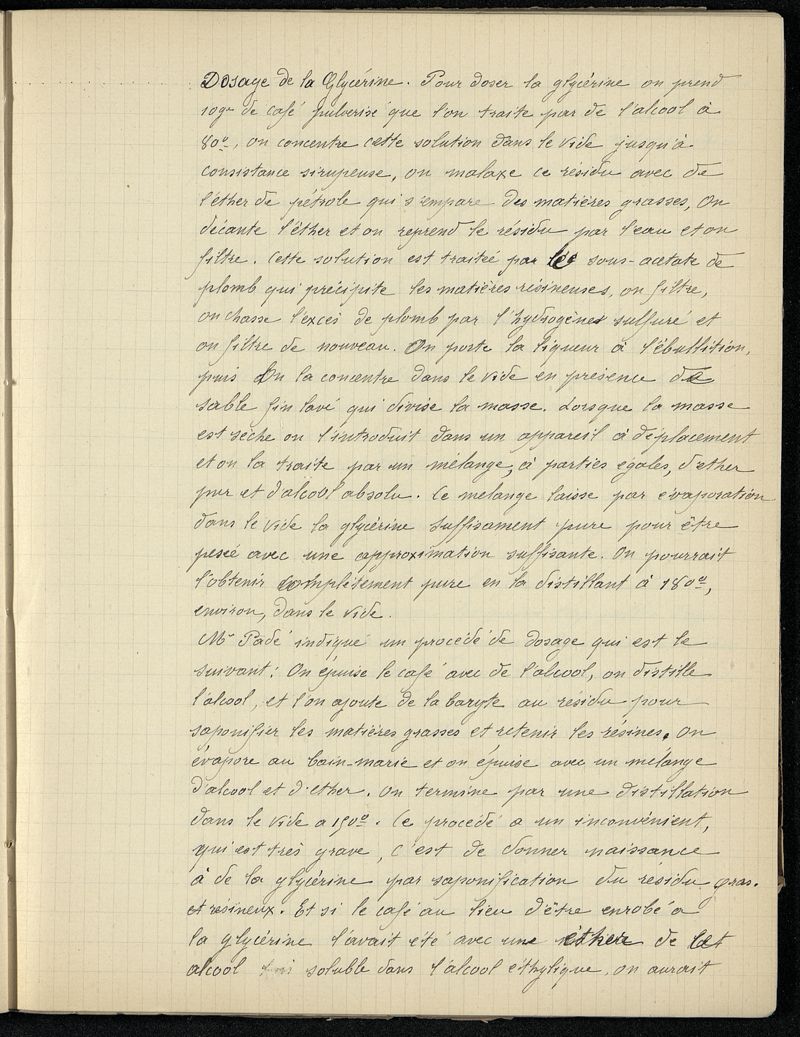 Dosage de la Glycérine. Pour doser la glycérine on prend
10gr de café pulverisé que l'on traite par de l'alcool à
80º, on concentre cette solution dans le vide jusqu'à
consistance sirupeuse, on malaxe ce résidu avec de
l'éther de pétrole qui s'empare des matières grasses, On
décante l'éther et on reprend le résidu par l'eau et on
filtre. Cette solution est traitée par le sous-acétate de
plomb qui précipite les matières résineuses, on filtre,
on chasse l'excès de plomb par l'hydrogène sulfuré et
on filtre de nouveau. On porte la liqueur à l'ébullition,
puis On la concentre dans le vide en présence de
sable fin lavé qui divise la masse. Lorsque la masse
est sèche on l'introduit dans un appareil à déplacement
et on la traite par un mélange, à parties égales, d'ether
pur et d'alcool absolu. Ce mélange laisse par évaporation
dans le vide la glycérine suffisament pure pour être
pesée avec une approximation suffisante. On pourrait
l'obtenir complètement pure en la distillant à 180º,
environ, dans le vide.
Mr Padé indique un procédé de dosage qui est le
suivant: On épuise le café avec de l'alcool, on distille
l'alcool, et l'on ajoute de la baryte au résidu pour
saponifier les matières grasses et retenir les résines. On
évapore au bain-marie et on épuise avec un mélange
d'alcool et d'ether. On termine par une distillation
dans le vide a 190º. Ce procédé a un inconvénient,
qui est très grave, c'est de donner naissance
à de la glycérine par saponification du résidu gras.
et résineux. Et si le café au lieu d'être enrobé à
la glycérine l'avait été avec une éther de cet
alcool soluble dans l'alcool éthylique, on aurait